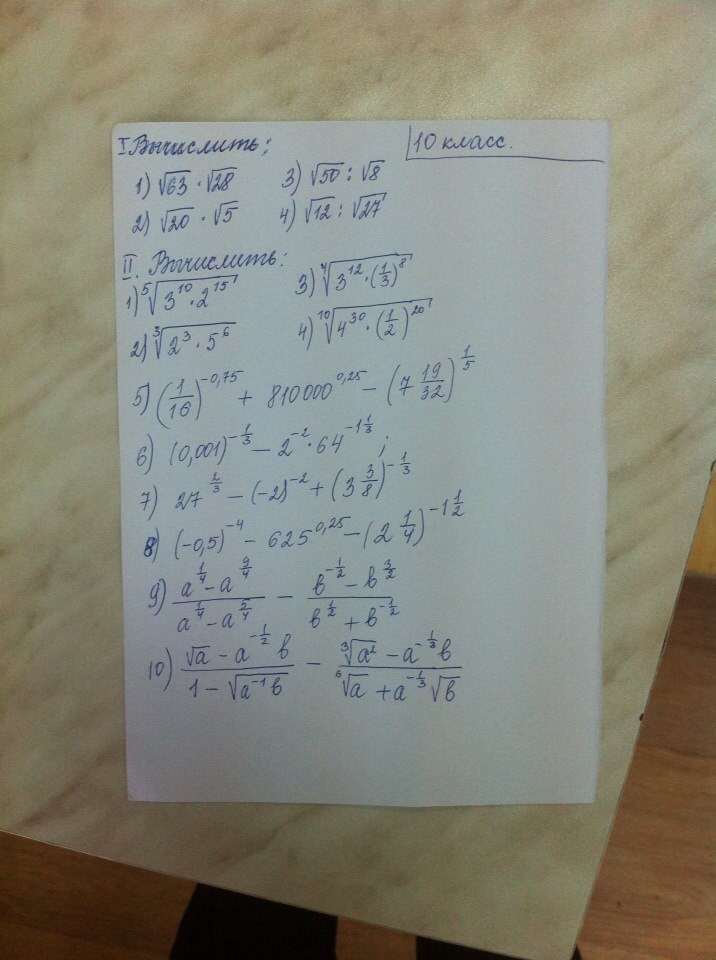 I Вычислить: 10 класс.
1) √63 · √28 3) √50 : √8
2) √20 · √5 4) √12 : √27
II. Вычислить:
1) ⁵√(3¹⁰ · 2¹⁵) 3) ⁴√(3¹² · (1/3)⁸)
2) ³√(2³ · 5⁶) 4) ¹⁰√(4³⁰ · (1/2)²⁰)
5) (1/16)^(-0,75) + 810000^(0,25) − (7 19/32)^(1/5)
6) (0,001)^(-1/3) − 2^(-2) · 64^(-1 1/3);
7) 27^(2/3) − (−2)^(-2) + (3 3/8)^(-1/3)
8) (−0,5)^(-4) − 625^(0,25) − (2 1/4)^(-1 1/2)
9) (a^(1/4) − a^(9/4))/(a^(1/4) − a^(5/4)) − (b^(-1/2) − b^(3/2))/(b^(1/2) + b^(-1/2))
10) (√a − a^(-1/2) b)/(1 − √(a^(-1) b)) − (³√(a²) − a^(-1/3) b)/(⁶√a + a^(-1/3) √b)